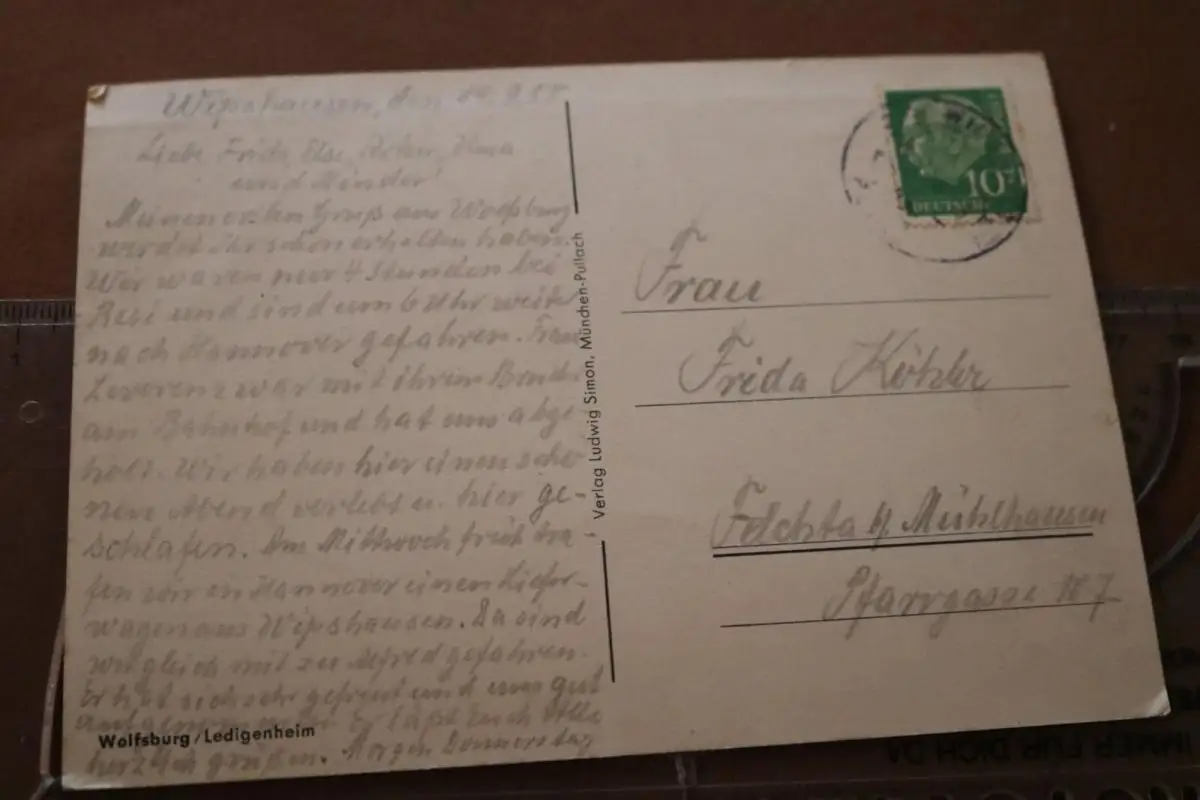 Wipshausen, den
Liebe Frida, Else,
und Kinder!
Meinen ersten Gruß aus Wolfsburg
werdet ihr schon erhalten haben.
Wir waren nur 4 Stunden bei
Resi und sind um 6 Uhr weiter
nach Hannover gefahren. Frau
war mit ihrem
am Bahnhof und hat uns abge-
holt. Wir haben hier einen schö-
nen Abend verlebt u. hier ge-
schlafen. Am Mittwoch früh tra-
fen wir in Hannover einen Liefer-
wagen aus Wipshausen. Da sind
wir gleich mit zu Alfred gefahren.
Er hat sich sehr gefreut und uns gut
aufgenommen. Er läßt Euch alle
herzlich grüßen. Morgen Donnerstag
Wolfsburg/Ledigenheim
Verlag Ludwig Simon, München-Pullach
10
DEUTSCHE
Frau
Frida Köhler
Felchta b/ Mühlhausen
Pfarrgasse 187
IMMER FÜR DICH DA